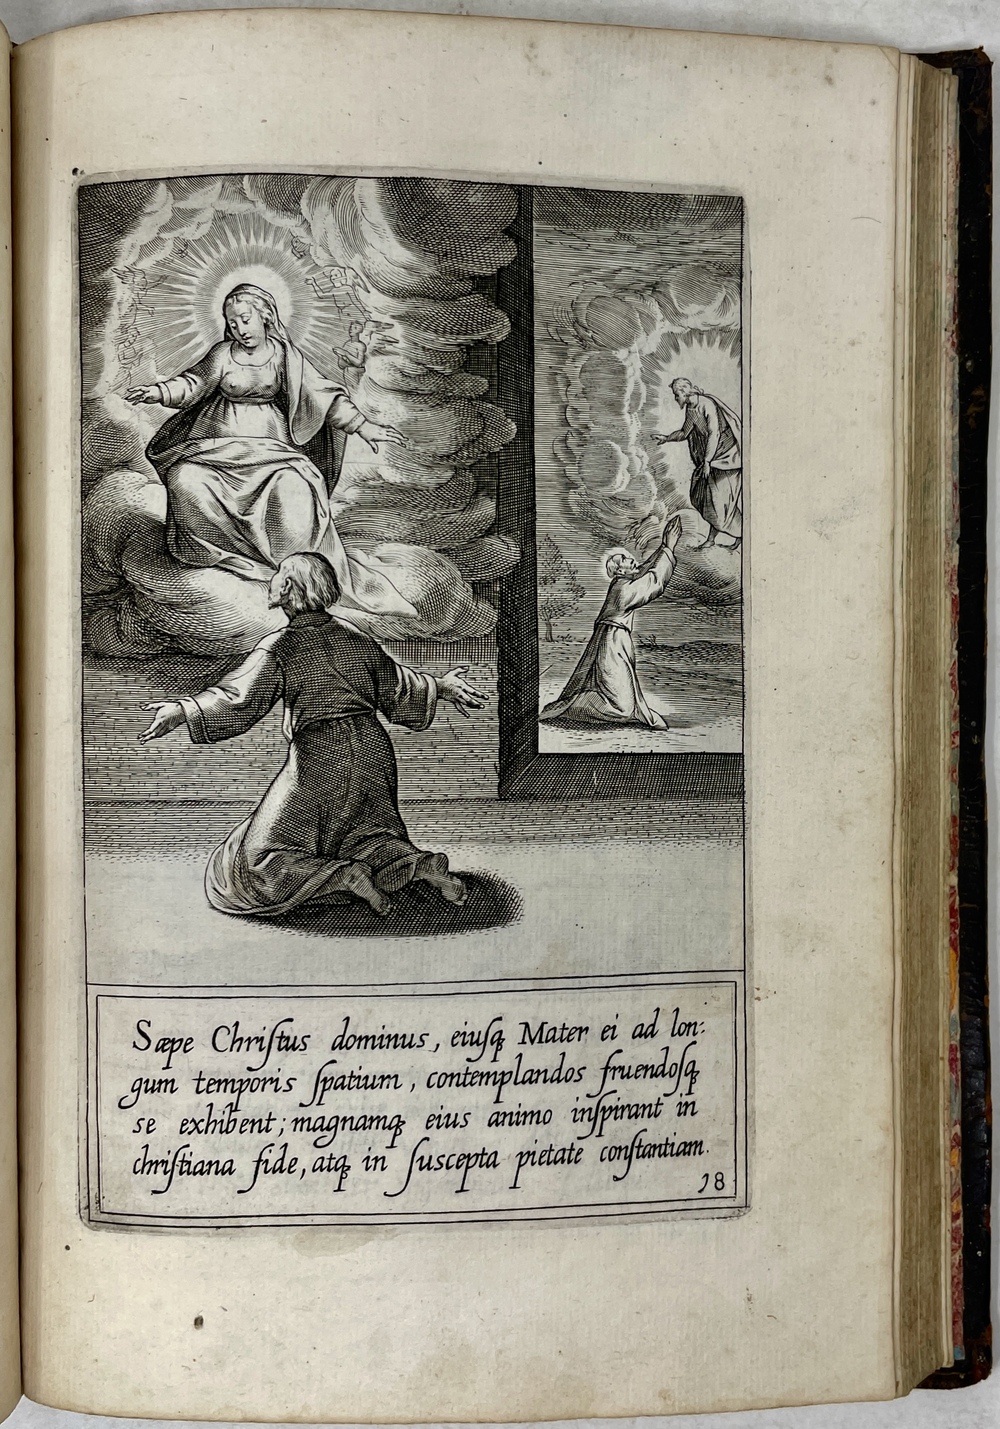 Sæpe Chriſtus dominus, eiuſqꝫ Mater ei ad lon:
gum temporis ſpatium, contemplandos fruendoſqꝫ
se exhibent; magnamqꝫ eius animo inſpirant in
chriſtiana fide, atqꝫ in ſuscepta pietate conſtantiam.
18